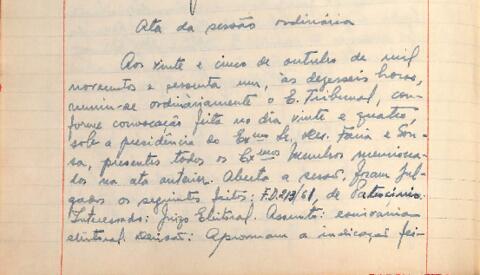 Ata da sessão ordinária
Aos vinte e cinco de outubro de mil
novecentos e sessenta e um, às dezesseis horas,
reuniu-se ordinàriamente o E. Tribunal, con-
forme convocação feita no dia vinte e quatro,
sob a presidência do Exmo Sr. Des. Faria e Sou-
sa, presentes todos os Exmos Membros menciona-
dos na ata anterior. Aberta a sessão, foram jul-
gados os seguintes feitos: F.D. 213/61, de Patrocínio.
Interessado: Juízo Eleitoral. Assunto: escrivania
eleitoral. Decisão: Aprovaram a indicação fei-